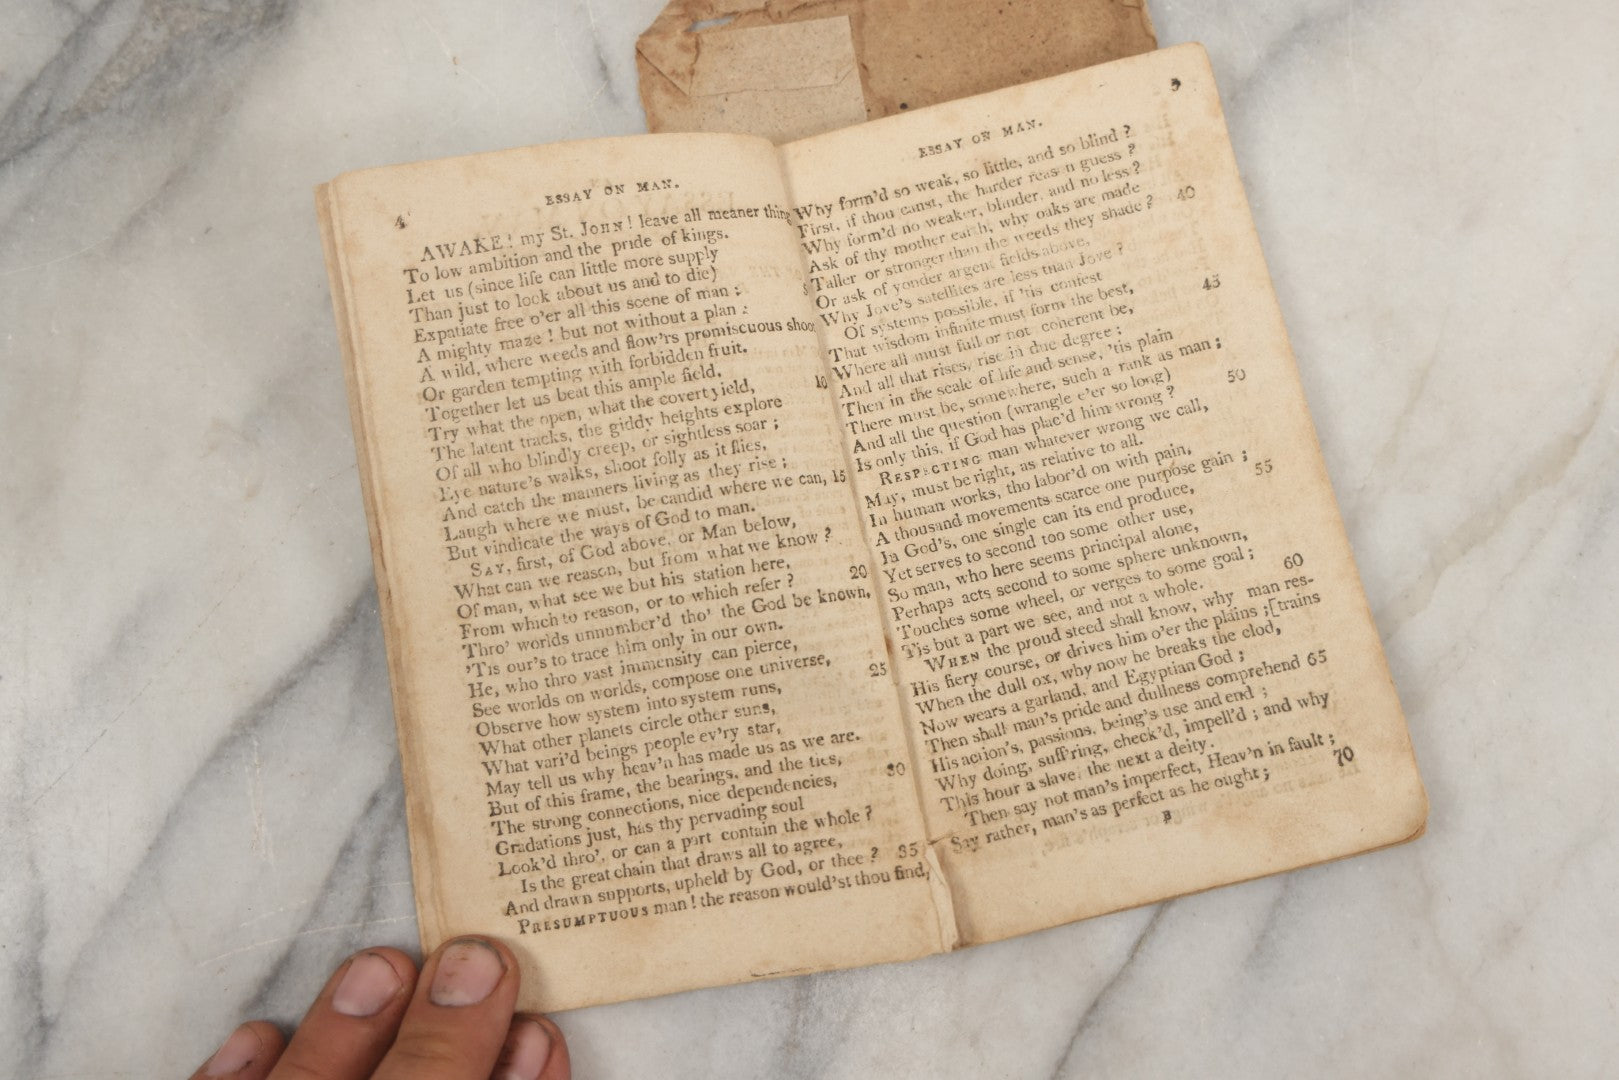 4
ESSAY ON MAN.
AWAKE! my St. JOHN! leave all meaner thing
To low ambition and the pride of kings.
Let us (since life can little more supply
Than just to look about us and to die)
Expatiate free o'er all this scene of man ; 5
A mighty maze ! but not without a plan :
A wild, where weeds and flow'rs promiscuous shoot
Or garden tempting with forbidden fruit.
Together let us beat this ample field,
Try what the open, what the covert yield, 10
The latent tracks, the giddy heights explore
Of all who blindly creep, or sightless soar ;
Eye nature's walks, shoot folly as it flies,
And catch the manners living as they rise ;
Laugh where we must, be candid where we can, 15
But vindicate the ways of God to man.
SAY, first, of God above, or Man below,
What can we reason, but from what we know ?
Of man, what see we but his station here,
From which to reason, or to which refer ? 20
Thro' worlds unnumber'd tho' the God be known,
'Tis our's to trace him only in our own.
He, who thro vast immensity can pierce,
See worlds on worlds, compose one universe,
Observe how system into system runs, 25
What other planets circle other suns,
What vari'd beings people ev'ry star,
May tell us why heav'n has made us as we are.
But of this frame, the bearings, and the ties,
The strong connections, nice dependencies, 30
Gradations just, has thy pervading soul
Look'd thro', or can a part contain the whole ?
Is the great chain that draws all to agree,
And drawn supports, upheld by God, or thee ?
PRESUMPTUOUS man ! the reason would'st thou find, 35
5
ESSAY ON MAN.
Why form'd so weak, so little, and so blind ?
First, if thou canst, the harder reason guess ?
Why form'd no weaker, blinder, and no less ?
Ask of thy mother earth, why oaks are made
Taller or stronger than the weeds they shade ? 40
Or ask of yonder argent fields above,
Why Jove's satellites are less than Jove ?
Of systems possible, if 'tis confest
That wisdom infinite must form the best,
Where all must full or not coherent be, 45
And all that rises, rise in due degree ;
Then in the scale of life and sense, 'tis plain
There must be, somewhere, such a rank as man ;
And all the question (wrangle e'er so long)
Is only this, if God has plac'd him wrong ? 50
RESPECTING man whatever wrong we call,
May, must be right, as relative to all.
In human works, tho labor'd on with pain,
A thousand movements scarce one purpose gain ;
In God's, one single can its end produce, 55
Yet serves to second too some other use,
So man, who here seems principal alone,
Perhaps acts second to some sphere unknown,
Touches some wheel, or verges to some goal ;
'Tis but a part we see, and not a whole. 60
WHEN the proud steed shall know, why man res-
His fiery course, or drives him o'er the plains ;[trains
When the dull ox, why now he breaks the clod,
Now wears a garland, and Egyptian God ;
Then shall man's pride and dullness comprehend 65
His action's, passions, being's use and end ;
Why doing, suff'ring, check'd, impell'd ; and why
This hour a slave, the next a deity.
Then say not man's imperfect, Heav'n in fault ;
Say rather, man's as perfect as he ought ; 70
B